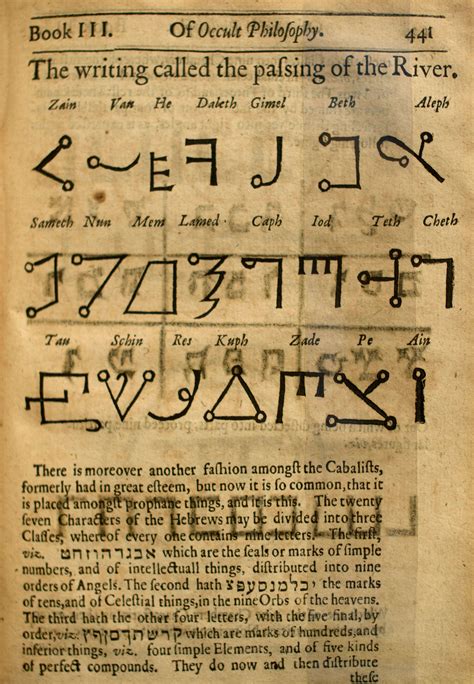 Book III. Of Occult Philosophy. 441
The writing called the paſsing of the River.
Zain Vau He Daleth Gimel Beth Aleph
Samech Nun Mem Lamed. Caph Iod Teth Cheth
Tau Schin Res Kuph Zade Pe Ain
There is moreover another faſhion amongſt the Cabaliſts,
formerly had in great eſteem, but now it is ſo common, that it
is placed amongſt prophane things, and it is this. The twenty
ſeven Characters of the Hebrews may be divided into three
Claſſes, whereof every one contains nine letters. The firſt,
viz. אבגדהוזחט which are the ſeals or marks of ſimple
numbers, and of intellectuall things, diſtributed into nine
orders of Angels. The second hath יכלמנסעפצ the marks
of tens, and of Celeſtial things, in the nine Orbs of the heavens.
The third hath the other four letters, with the five final, by
order, viz. קרשתךםןףץ which are marks of hundreds, and
inferior things, viz. four ſimple Elements, and of five kinds
of perfect compounds. They do now and then diſtribute
theſe